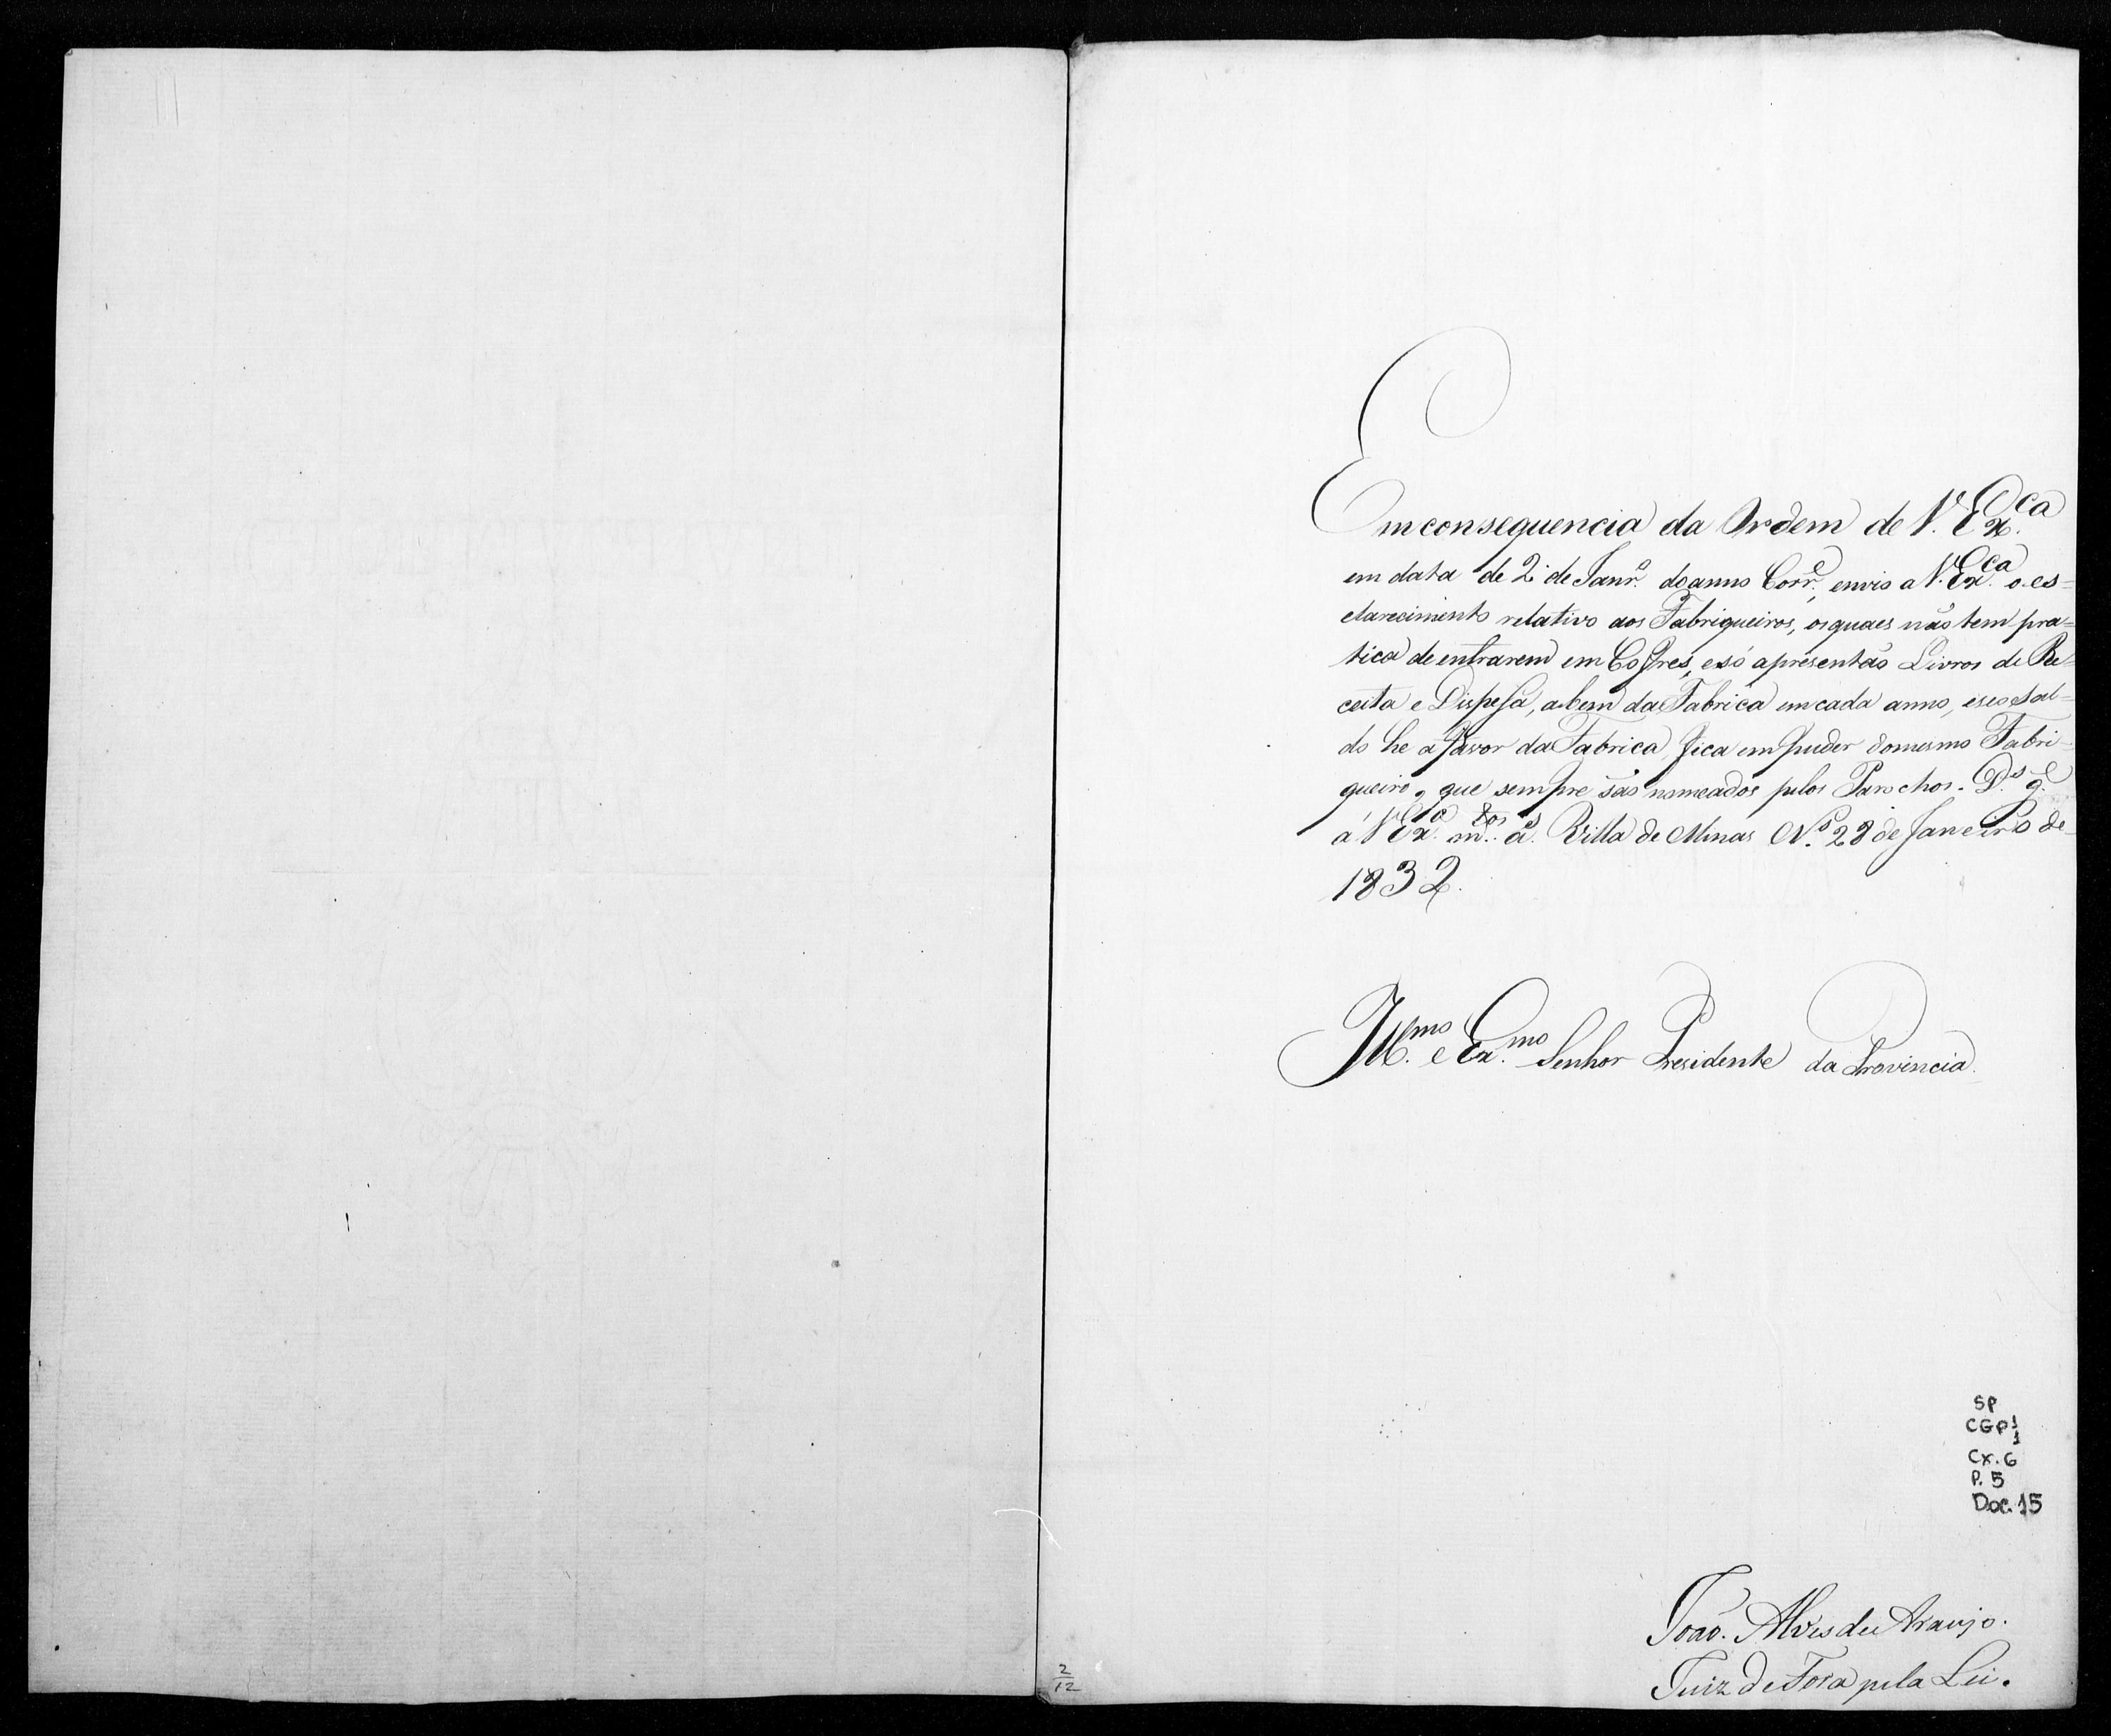 Em consequencia da Ordem de V. Ex.ca
em data de 2 de Janr.o do anno Corr.e, envio a V. Ex.ca o es=
clarecimento relativo aos Fabriqueiros, os quaes não tem pra=
tica de entrarem em Cofres, e só apresentão Livros de Re=
ceita e Dispesa, a bem da Fabrica em cada anno, e se o Sal=
do he a favor da Fabrica, fica em puder do mesmo Fabri=
queiro, que sempre são nomeados pelos Parochos. D.s g.e
a V. Ex.a m.tos a.s Villa de Minas N.s 28 de Janeiro de
1832.
Ill.mo e Ex.mo Senhor Presidente da Provincia.
SP
CGP1
1
Cx. 6
P. 5
Doc. 15
João Alves de Araujo.
Juiz de Fora pela Lei.
2/12